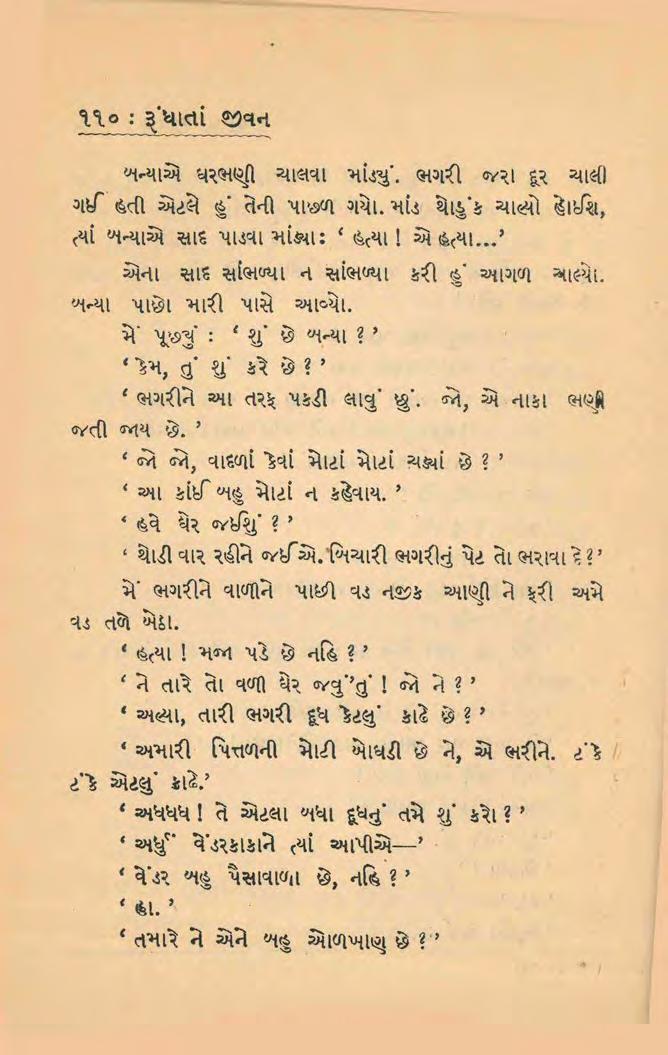 ૧૧૦ : રૂંધાતાં જીવન
બન્યાએ ઘરભણી ચાલવા માંડ્યું. ભગરી જરા દૂર ચાલી
ગઈ હતી એટલે હું તેની પાછળ ગયો. માંડ થોડુંક ચાલ્યો હોઈશ,
ત્યાં બન્યાએ સાદ પાડવા માંડ્યા: ‘ હત્યા ! એ હત્યા...’
એના સાદ સાંભળ્યા ન સાંભળ્યા કરી હું આગળ ચાલ્યો.
બન્યા પાછો મારી પાસે આવ્યો.
મેં પૂછ્યું : ‘ શું છે બન્યા ? ’
‘ કેમ, તું શું કરે છે ? ’
‘ ભગરીને આ તરફ પકડી લાવું છું. જો, એ નાકા ભણી
જતી જાય છે. ’
‘ જો જો, વાદળાં કેવાં મોટાં મોટાં ચઢ્યાં છે ? ’
‘ આ કાંઈ બહુ મોટાં ન કહેવાય. ’
‘ હવે ઘેર જઈશું ? ’
‘ થોડી વાર રહીને જઈએ. બિચારી ભગરીનું પેટ તો ભરાવા દે ?’
મેં ભગરીને વાળીને પાછી વડ નજીક આણી ને ફરી અમે
વડ તળે બેઠા.
‘ હત્યા ! મજા પડે છે નહિ ? ’
‘ ને તારે તો વળી ઘેર જવું’તું ! જો ને ? ’
‘ અલ્યા, તારી ભગરી દૂધ કેટલું કાઢે છે ? ’
‘ અમારી પિત્તળની મોટી બોઘડી છે ને, એ ભરીને. ટંકે
ટંકે એટલું કાઢે.’
‘ અધધધ ! તે એટલા બધા દૂધનું તમે શું કરો ? ’
‘ અર્ધું વેંડરકાકાને ત્યાં આપીએ—’
‘ વેંડર બહુ પૈસાવાળા છે, નહિ ? ’
‘ હા. ’
‘ તમારે ને એને બહુ ઓળખાણ છે ? ’